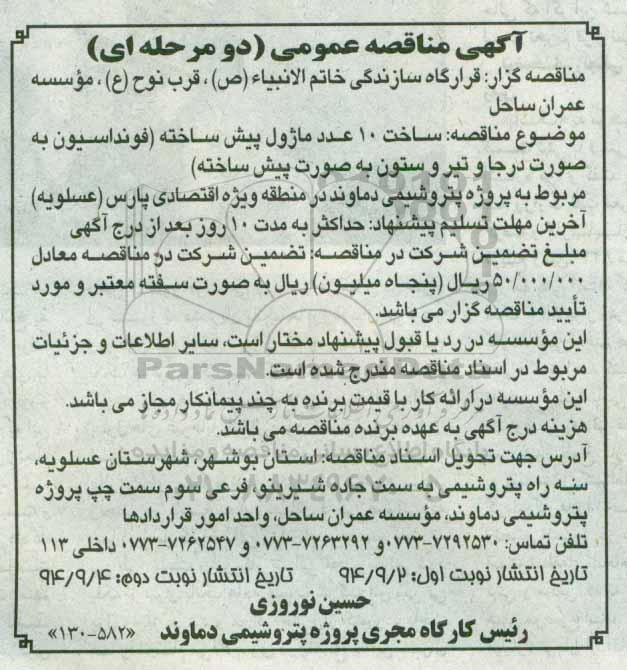 آگهی مناقصه عمومی (دو مرحله ای)
مناقصه گزار: قرارگاه سازندگی خاتم الانبیاء (ص)، قرب نوح (ع)، مؤسسه
عمران ساحل
موضوع مناقصه: ساخت ۱۰ عدد ماژول پیش ساخته (فونداسیون به
صورت درجا و تیر و ستون به صورت پیش ساخته)
مربوط به پروژه پتروشیمی دماوند در منطقه ویژه اقتصادی پارس (عسلویه)
آخرین مهلت تسلیم پیشنهاد: حداکثر به مدت ۱۰ روز بعد از درج آگهی
مبلغ تضمین شرکت در مناقصه: تضمین شرکت در مناقصه معادل
۵۰/۰۰۰/۰۰۰ ریال (پنجاه میلیون) ریال به صورت سفته معتبر و مورد
تأیید مناقصه گزار می باشد.
این مؤسسه در رد یا قبول پیشنهاد مختار است، سایر اطلاعات و جزئیات
مربوط در اسناد مناقصه مندرج شده است.
این مؤسسه در ارائه کار با قیمت برنده به چند پیمانکار مجاز می باشد.
هزینه درج آگهی به عهده برنده مناقصه می باشد.
آدرس جهت تحویل اسناد مناقصه: استان بوشهر، شهرستان عسلویه،
سه راه پتروشیمی به سمت جاده شیرینو، فرعی سوم سمت چپ پروژه
پتروشیمی دماوند، مؤسسه عمران ساحل، واحد امور قراردادها
تلفن تماس: ۷۲۹۲۵۳۰-۰۷۷۳ و ۷۲۶۳۲۹۲-۰۷۷۳ و ۷۲۶۲۵۴۷-۰۷۷۳ داخلی ۱۱۳
تاریخ انتشار نوبت اول: ۹۴/۹/۲ تاریخ انتشار نوبت دوم: ۹۴/۹/۴
حسین نوروزی
رئیس کارگاه مجری پروژه پتروشیمی دماوند «۵۸۲-۱۳۰»
ParsNamadData